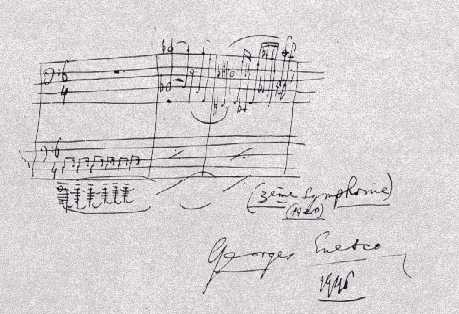 (3ème Symphonie)
Georges Enesco
1946